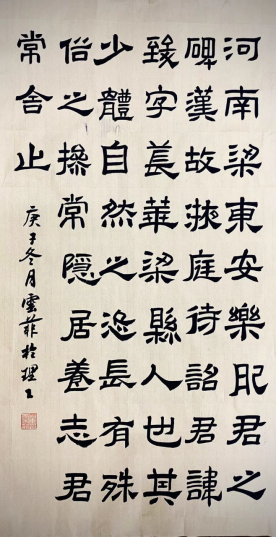 河南梁東安樂肥君之
碑漢故掖庭待詔君諱
致字萇華梁縣人也其
少體自然之恣長有殊
俗之操常隱居養志君
常舍止
庚子冬月雲菲於理工